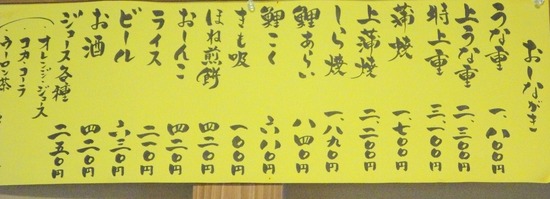 おしながき
うな重 一、八〇〇円
上うな重 二、三〇〇円
特上重 三、一〇〇円
蒲焼 一、七〇〇円
上蒲焼 二、二〇〇円
しら焼 一、八九〇円
鯉あらい 八四〇円
鯉こく 六八〇円
きも吸 一〇〇円
ほね煎餅 四二〇円
おしんこ 四二〇円
ライス 二一〇円
ビール 六三〇円
お酒 四二〇円
ジュース各種 二五〇円
オレンジジュース
コカ・コーラ
ウーロン茶